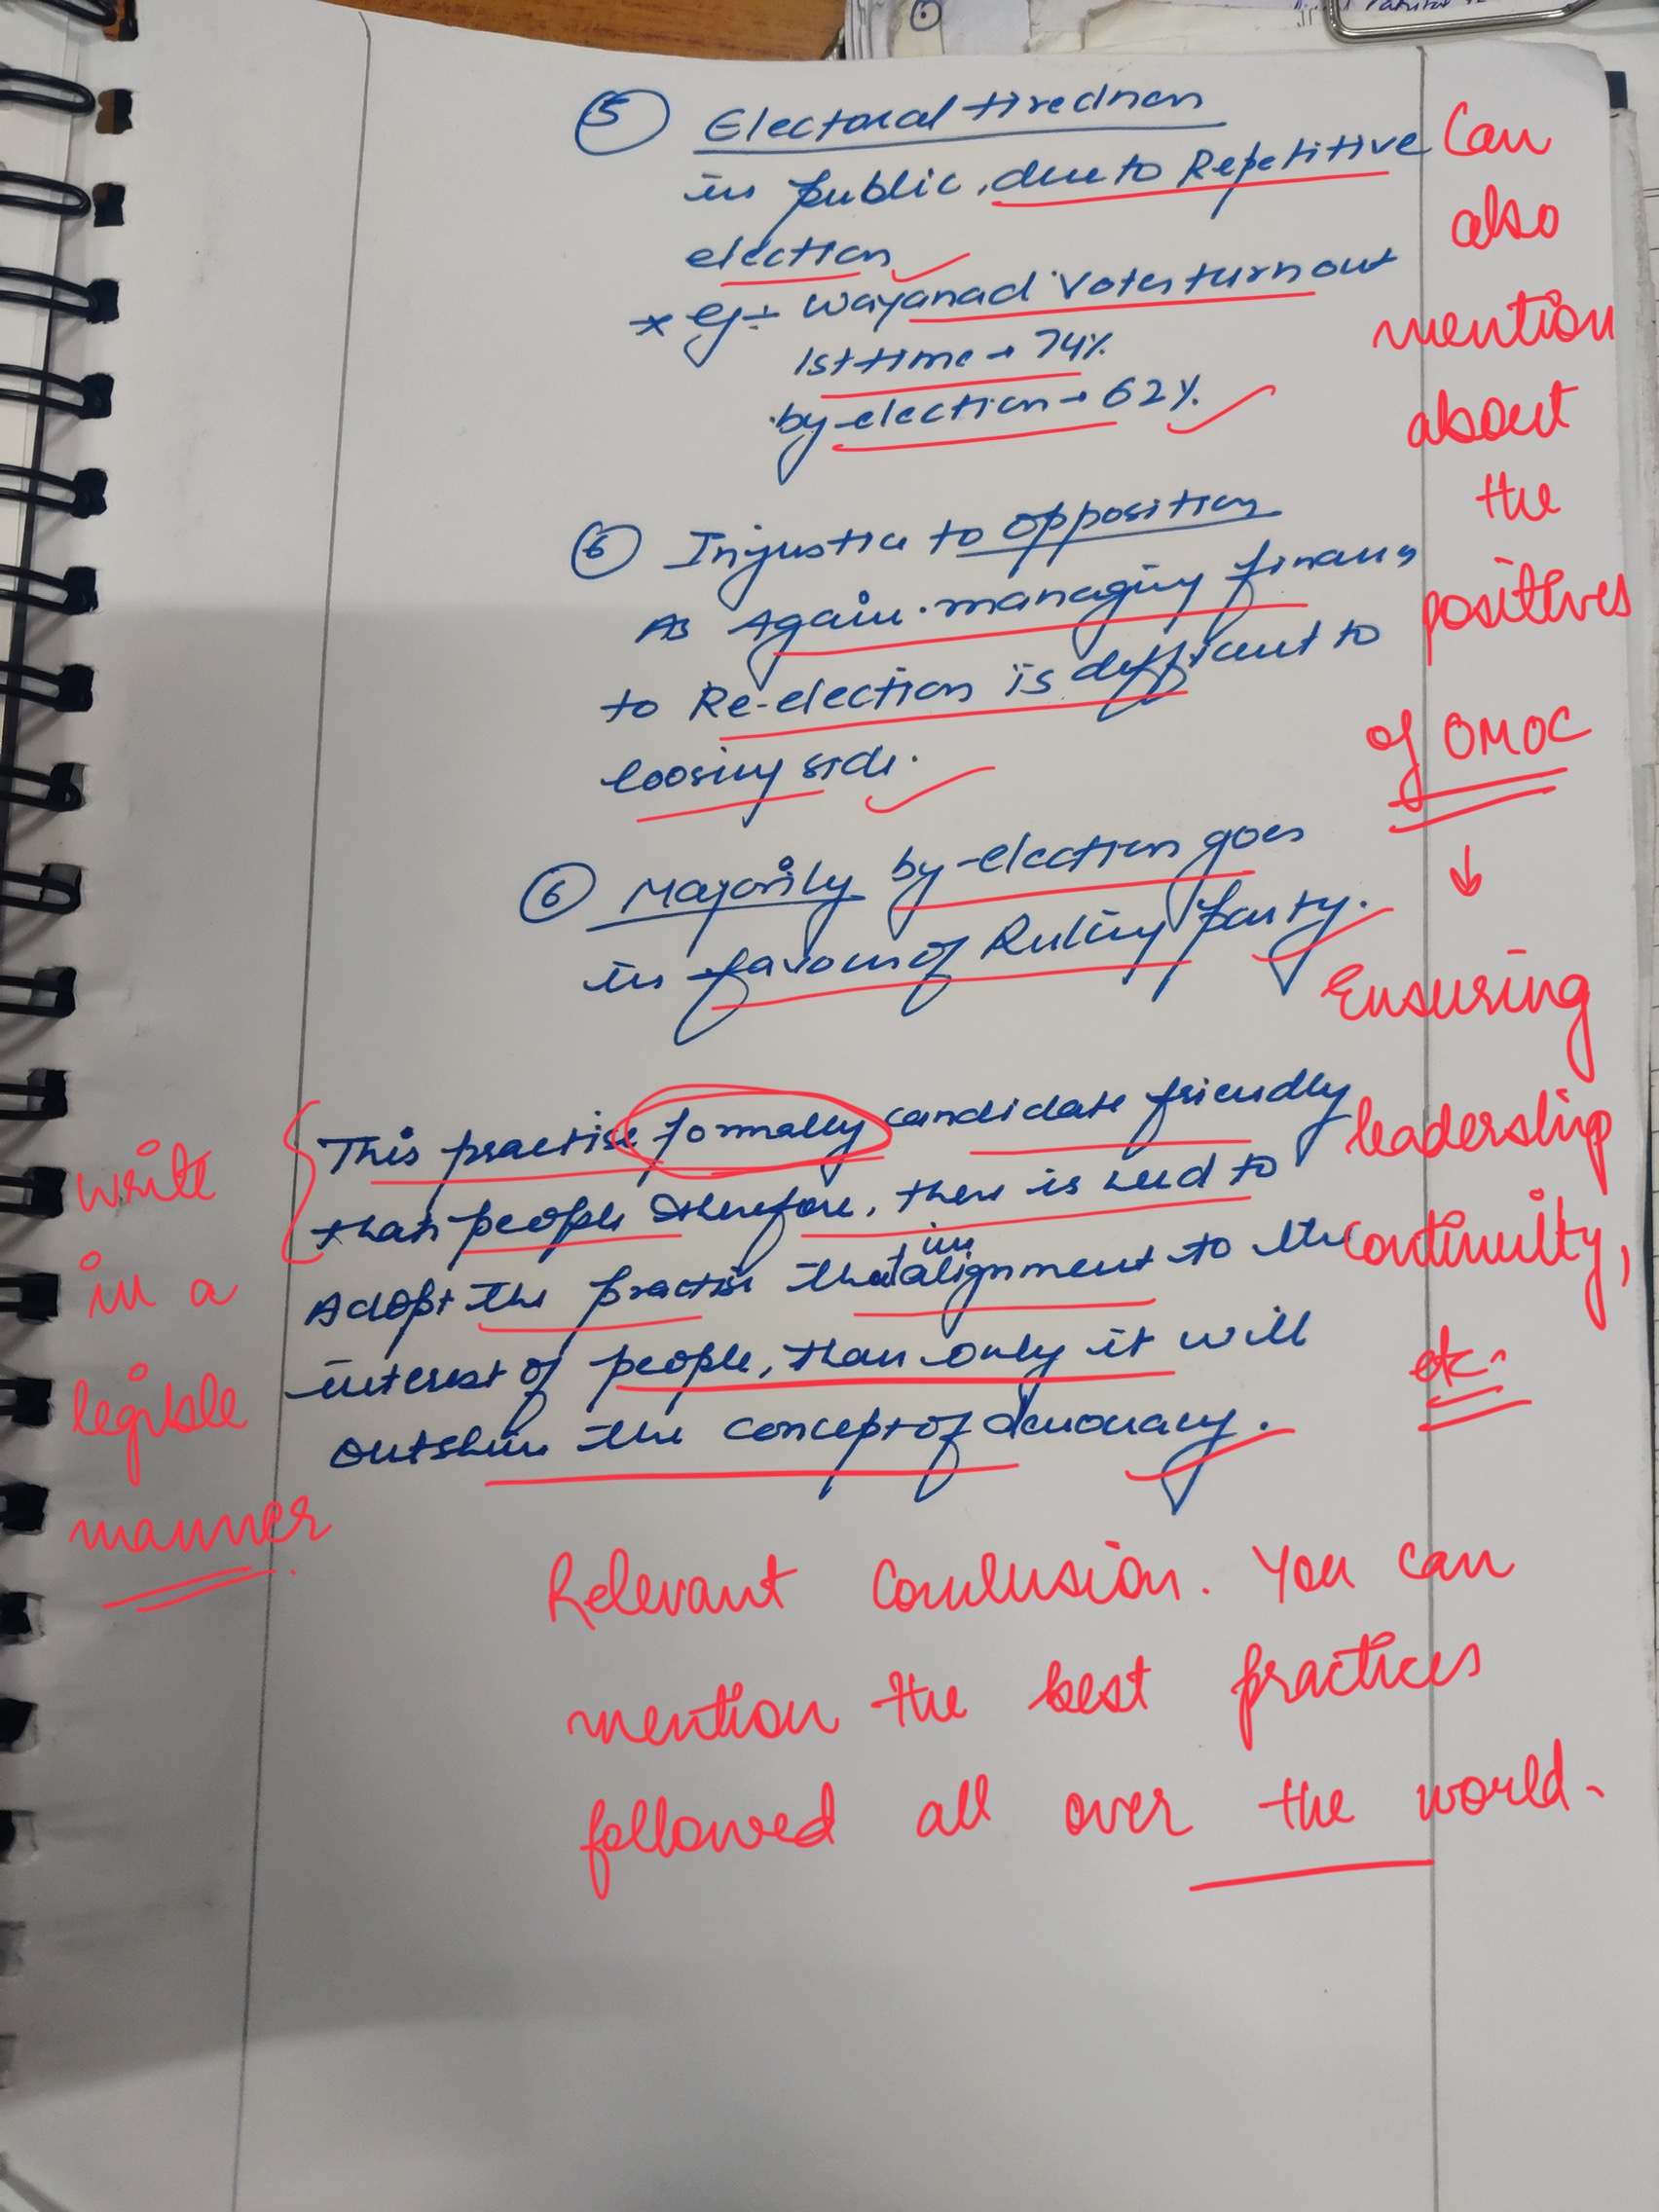 5 Electoral tiredness
in public, due to Repetitive
election
* eg÷ Wayanad Voter turnout
1st time → 74%
by-election → 62%.
6 Injustice to opposition
As Again managing finances
to Re-election is difficult to
loosing side.
6 Majority by-election goes
in favour of Ruling party.
This practise formally candidate friendly
than people therefore, there is need to
Adopt the practise that in alignment to the
interest of people, than only it will
outshine the concept of democracy.
Can
also
mention
about
the
positives
of OMOC
↓
Ensuring
leadership
continuity,
etc.
write
in a
legible
manner
Relevant Conclusion. You can
mention the best practices
followed all over the world.